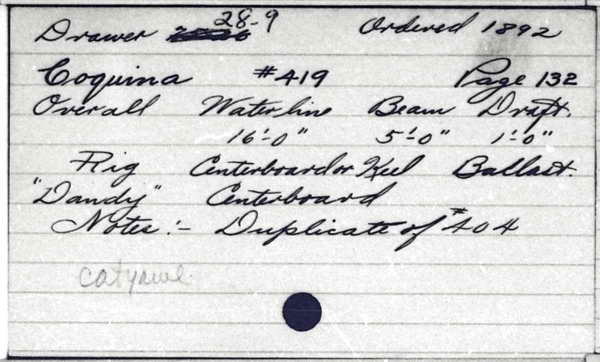 Drawer 28-9 Ordered 1892
Coquina #419 Page 132
Overall Waterline Beam Draft.
16'-0" 5'-0" 1'-0"
Rig Centerboard or Keel Ballast.
"Dandy" Centerboard
Notes:- Duplicate of #404